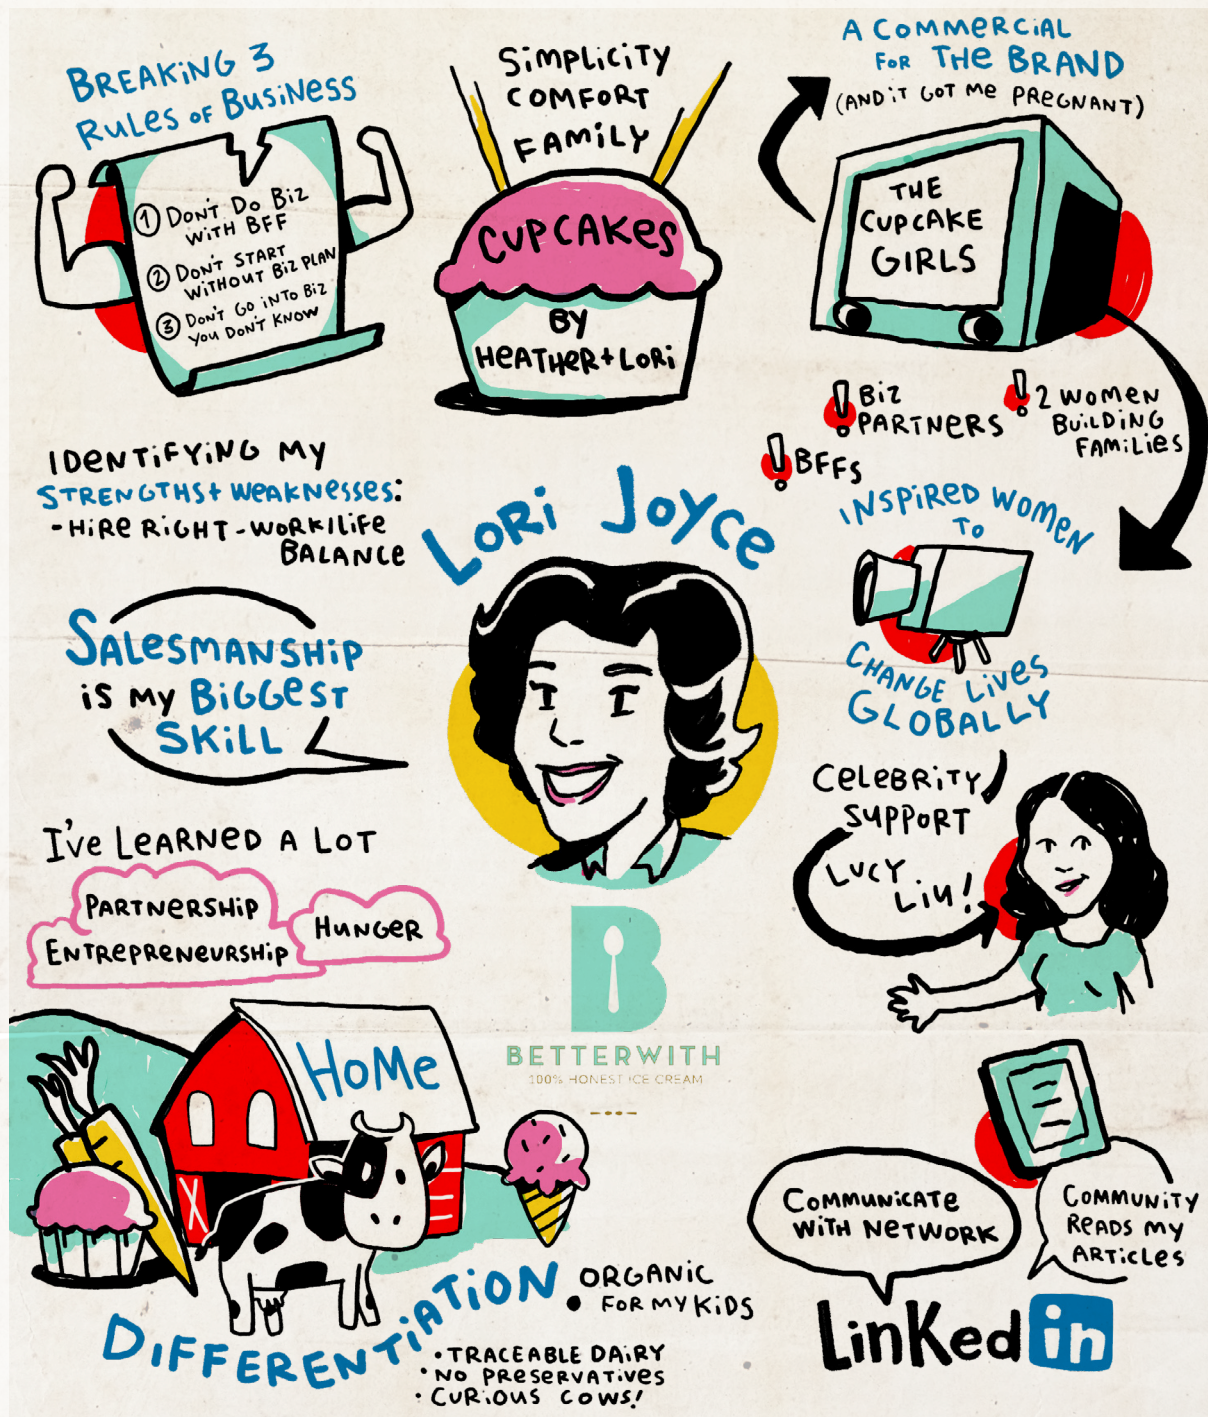 BREAKING 3
RULES OF BUSINESS
1 DON'T DO BIZ
WITH BFF
2 DON'T START
WITHOUT BIZ PLAN
3 DON'T GO INTO BIZ
YOU DON'T KNOW
SIMPLICITY
COMFORT
FAMILY
CUPCAKES
BY
HEATHER + LORI
A COMMERCIAL
FOR THE BRAND
(AND IT GOT ME PREGNANT)
THE
CUPCAKE
GIRLS
! BIZ
PARTNERS
! 2 WOMEN
BUILDING
FAMILIES
! BFFS
IDENTIFYING MY
STRENGTHS + WEAKNESSES:
- HIRE RIGHT - WORK/LIFE
BALANCE
LORI JOYCE
INSPIRED WOMEN
TO
CHANGE LIVES
GLOBALLY
SALESMANSHIP
IS MY BIGGEST
SKILL
CELEBRITY
SUPPORT
LUCY
LIU!
I'VE LEARNED A LOT
PARTNERSHIP
ENTREPRENEURSHIP
HUNGER
B
BETTERWITH
100% HONEST ICE CREAM
HOME
DIFFERENTIATION
ORGANIC
• FOR MY KIDS
• TRACEABLE DAIRY
• NO PRESERVATIVES
• CURIOUS COWS!
COMMUNICATE
WITH NETWORK
COMMUNITY
READS MY
ARTICLES
LinKed in